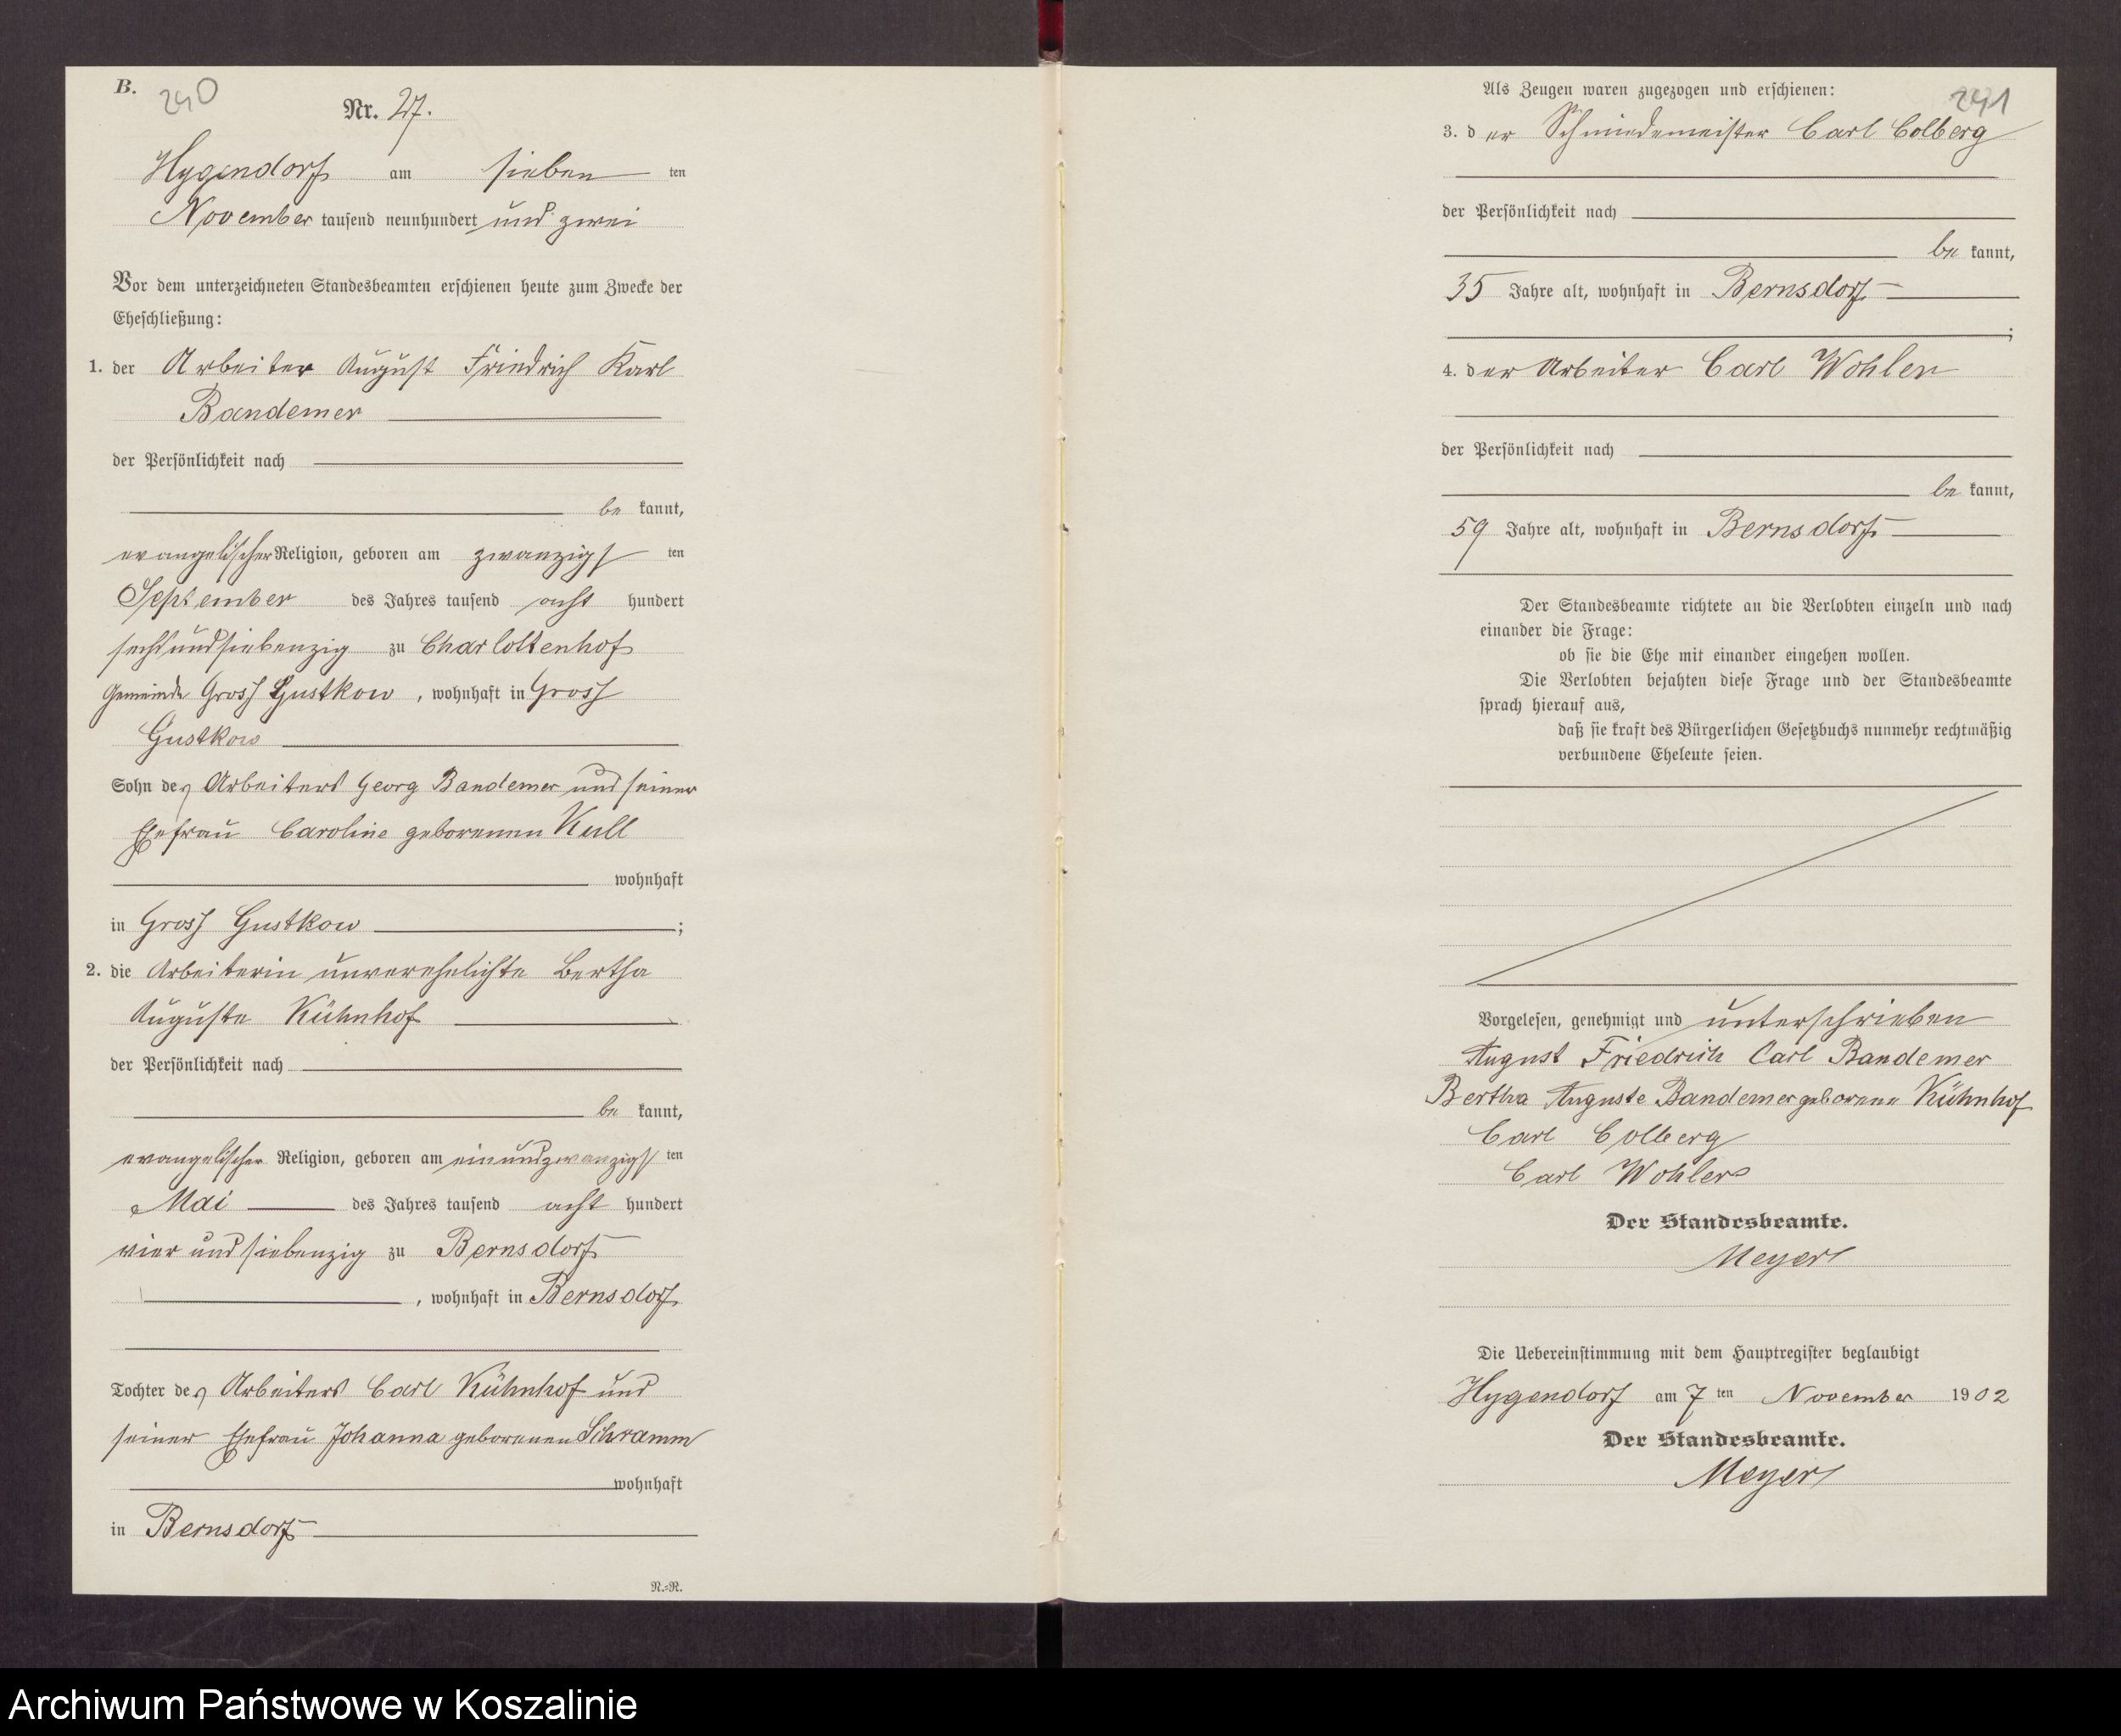 B.
240
Nr. 27.
Hygendorf am sieben ten
November tausend neunhundert und zwei
Vor dem unterzeichneten Standesbeamten erschienen heute zum Zwecke der
Eheschließung:
1. der Arbeiter August Friedrich Karl
Bandemer
der Persönlichkeit nach
be kannt,
evangelischer Religion, geboren am zwanzigs ten
September des Jahres tausend acht hundert
sechsundsiebenzig zu Charlottenhof
Gemeinde Gross Gustkow, wohnhaft in Gross
Gustkow
Sohn des Arbeiters Georg Bandemer und seiner
Ehefrau Caroline geborenen Kull
wohnhaft
in Gross Gustkow ;
2. die Arbeiterin unverehelichte Bertha
Auguste Kühnhof
der Persönlichkeit nach
be kannt,
evangelischer Religion, geboren am einundzwanzigs ten
Mai des Jahres tausend acht hundert
vier und siebenzig zu Bernsdorf
, wohnhaft in Bernsdorf
Tochter des Arbeiters Carl Kühnhof und
seiner Ehefrau Johanna geborenen Schramm
wohnhaft
in Bernsdorf
N.=N.
Als Zeugen waren zugezogen und erschienen:
241
3. der Schmiedemeister Carl Colberg
der Persönlichkeit nach
be kannt,
35 Jahre alt, wohnhaft in Bernsdorf
;
4. der Arbeiter Carl Wohler
der Persönlichkeit nach
be kannt,
59 Jahre alt, wohnhaft in Bernsdorf
Der Standesbeamte richtete an die Verlobten einzeln und nach
einander die Frage:
ob sie die Ehe mit einander eingehen wollen.
Die Verlobten bejahten diese Frage und der Standesbeamte
sprach hierauf aus,
daß sie kraft des Bürgerlichen Gesetzbuchs nunmehr rechtmäßig
verbundene Eheleute seien.
Vorgelesen, genehmigt und unterschrieben
August Friedrich Carl Bandemer
Bertha Auguste Bandemer geborene Kühnhof
Carl Colberg
Carl Wohler
Der Standesbeamte.
Meyer
Die Uebereinstimmung mit dem Hauptregister beglaubigt
Hygendorf am 7 ten November 1902
Der Standesbeamte.
Meyer
Archiwum Państwowe w Koszalinie